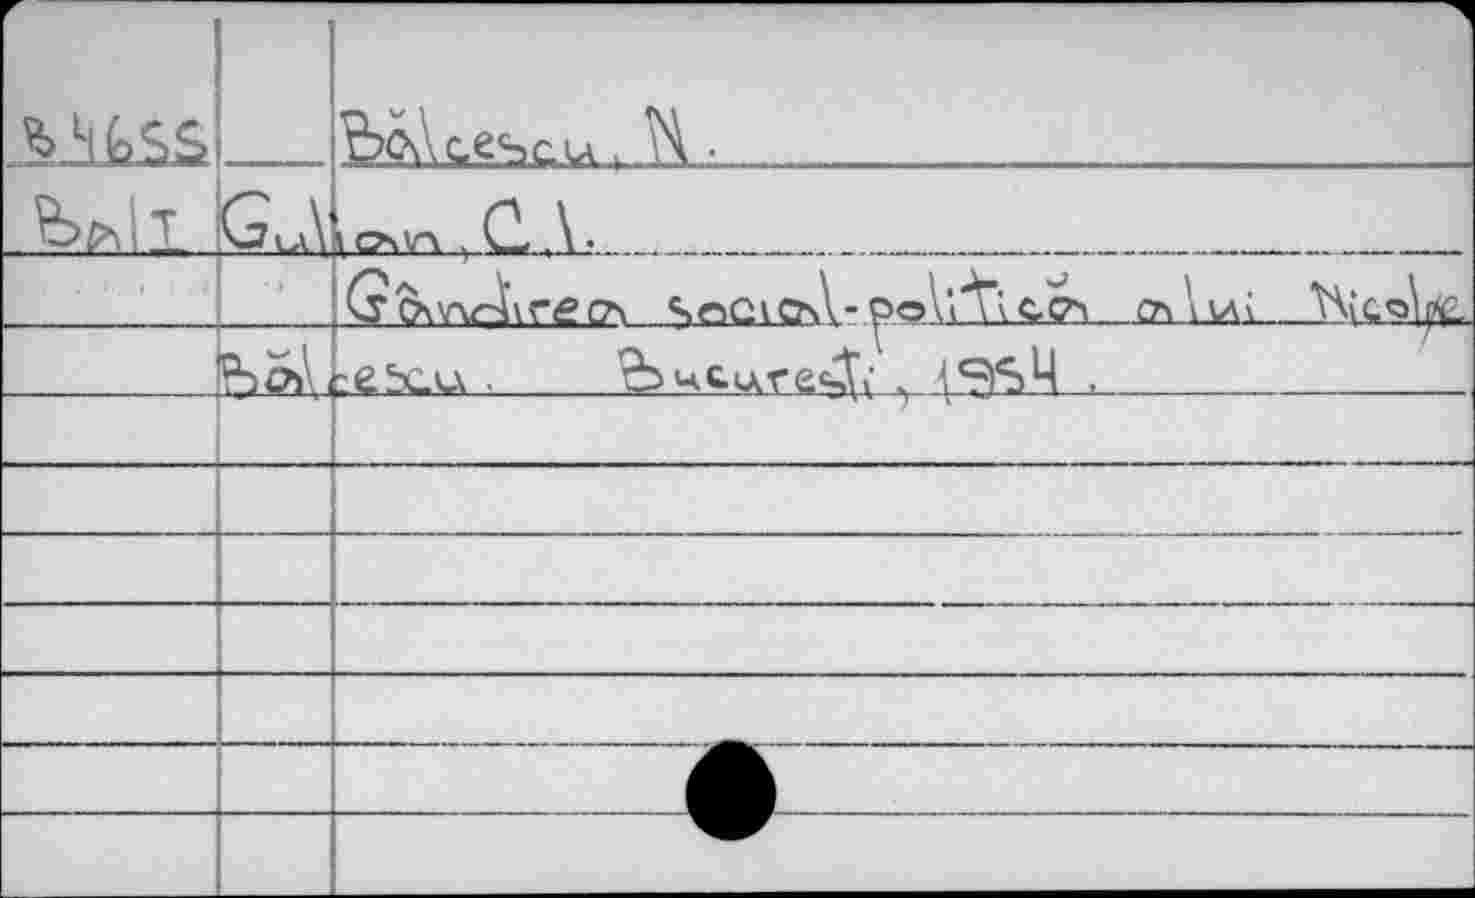 B4655 Bălcescu, N.
BalT Gulian, C.I.
Gândirea social-politică a lui Nicolae
Bălcescu. Bucureşti, 1954.